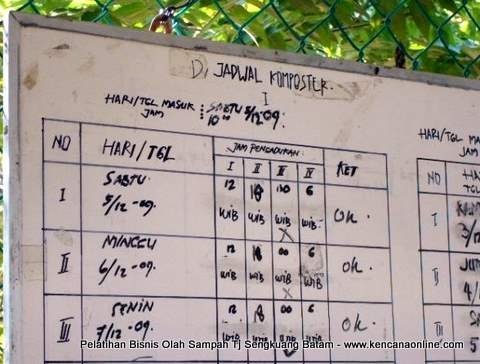 D, JADWAL KOMPOSTER.
I
HARI/TGL MASUK : SABTU 5/12-09.
JAM 10 00
NO HARI/TGL JAM PENGADUKAN KET
I II III IV
I SABTU 5/12-09. 12 18 00 6 OK.
WIB WIB WIB WIB
X
II MINGGU 6/12-09. 12 18 00 6 OK.
WIB WIB WIB WIB
X
III SENIN 7/12-09. 12 18 00 6 OK.
WIB WIB
HARI/TGL MA
JAM
NO HA
TGL
I 3/12
II JUM
4/1
III
5
Pelatihan Bisnis Olah Sampah Tj Sengkuang Batam - www.kencanaonline.com